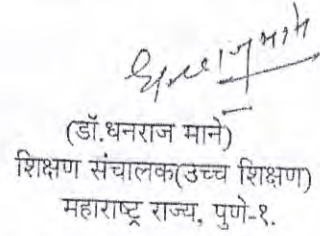 (डॉ.धनराज माने)
शिक्षण संचालक(उच्च शिक्षण)
महाराष्ट्र राज्य, पुणे-१.